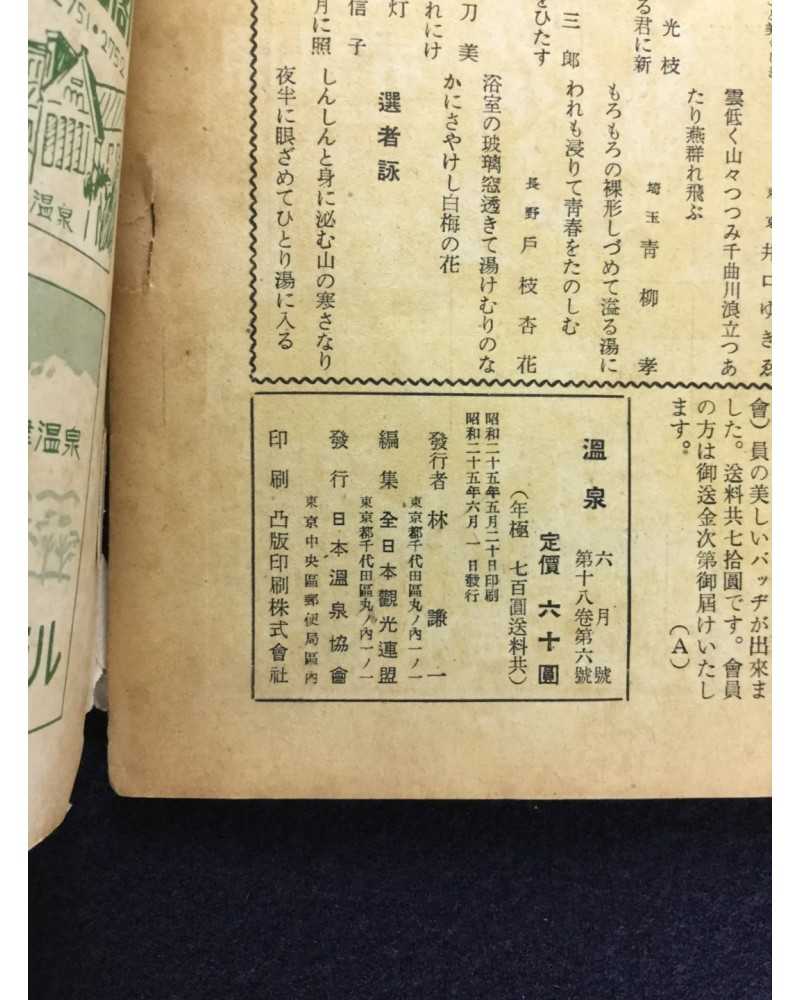 光枝
る君に新
三郎
をひたす
刀美
れにけ
灯
信子
月に照
井口ゆきゑ
雲低く山々つつみ千曲川浪立つあ
たり燕群れ飛ぶ
埼玉 青柳孝
もろもろの裸形しづめて溢る湯に
われも浸りて青春をたのしむ
長野 戸枝杏花
浴室の玻璃窓透きて湯けむりのな
かにさやけし白梅の花
選者詠
しんしんと身に泌む山の寒さなり
夜半に眼ざめてひとり湯に入る
會)員の美しいバッヂが出來ま
した。送料共七拾圓です。會員
の方は御送金次第御屆けいたし
ます。
(A)
溫泉
六月號
第十八卷第六號
定價 六十圓
(年極 七百圓送料共)
昭和二十五年五月二十日印刷
昭和二十五年六月一日發行
發行者 林謙一
東京都千代田區丸ノ內一ノ一
編集 全日本觀光連盟
東京都千代田區丸ノ內一ノ一
發行 日本溫泉協會
東京中央區郵便局區內
印刷 凸版印刷株式會社
2751・2752
温泉
温泉
ル